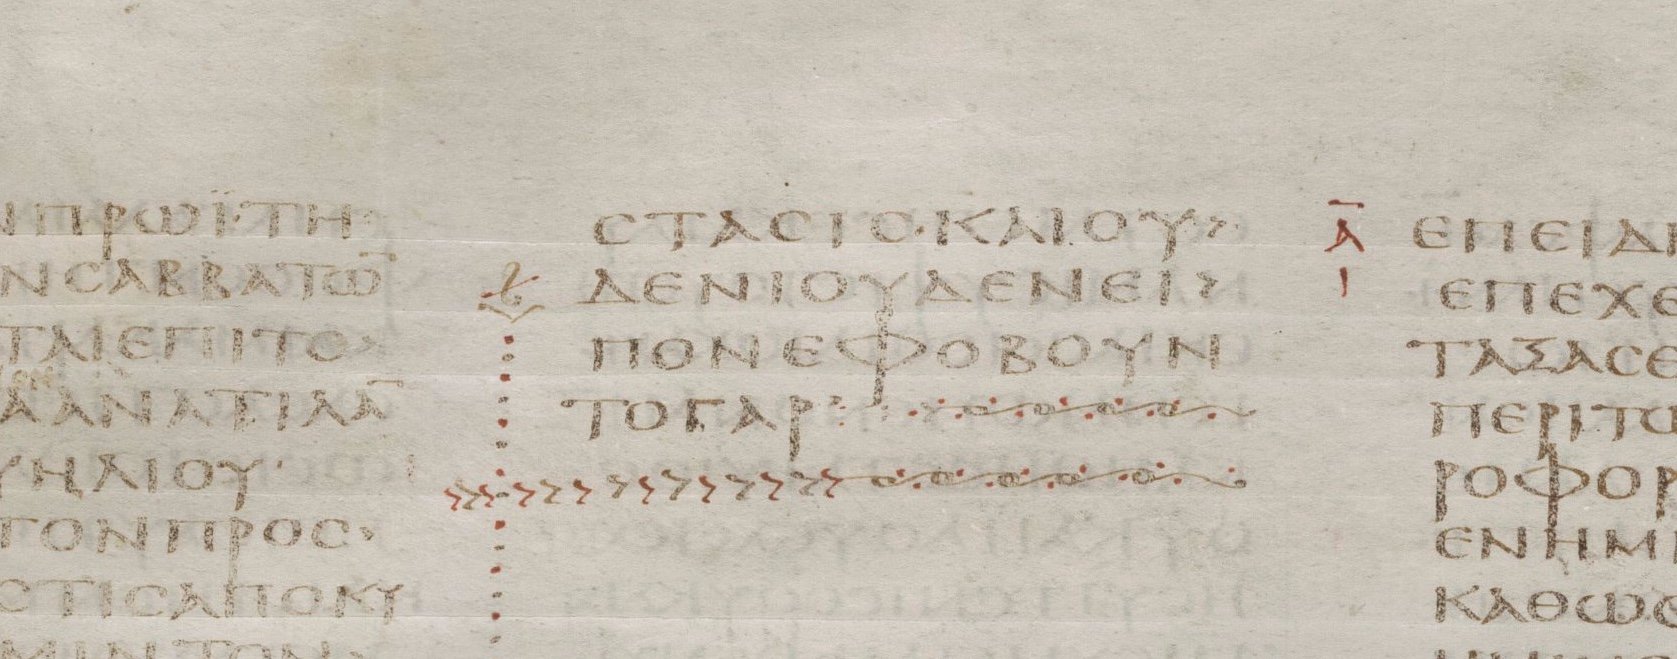 ΝΠΡΩΪΤΗ
ΝϹΑΒΒΑΤΩ̅
ΤΑΙΕΠΙΤΟ
ΑΑΝΑΤΙΛΑ̅
ΥΗΛΙΟΥ·
ΤΟΝΠΡΟϹ›
ϹΤΙϹΑΠΟΚΥ
ΜΙΝΤΟΝ›
ϹΤΑϹΙϹ·ΚΑΙΟΥ›
ΔΕΝΙΟΥΔΕΝΕΙ›
ΠΟΝΕΦΟΒΟΥΝ
ΤΟΓΑΡ:
Α̅
Ι
ΕΠΕΙΔΗ
ΕΠΕΧΕ
ΤΑΞΑϹΘ
ΠΕΡΙΤΩ
ΡΟΦΟΡ
ΕΝΗΜΙ
ΚΑΘΩϹ